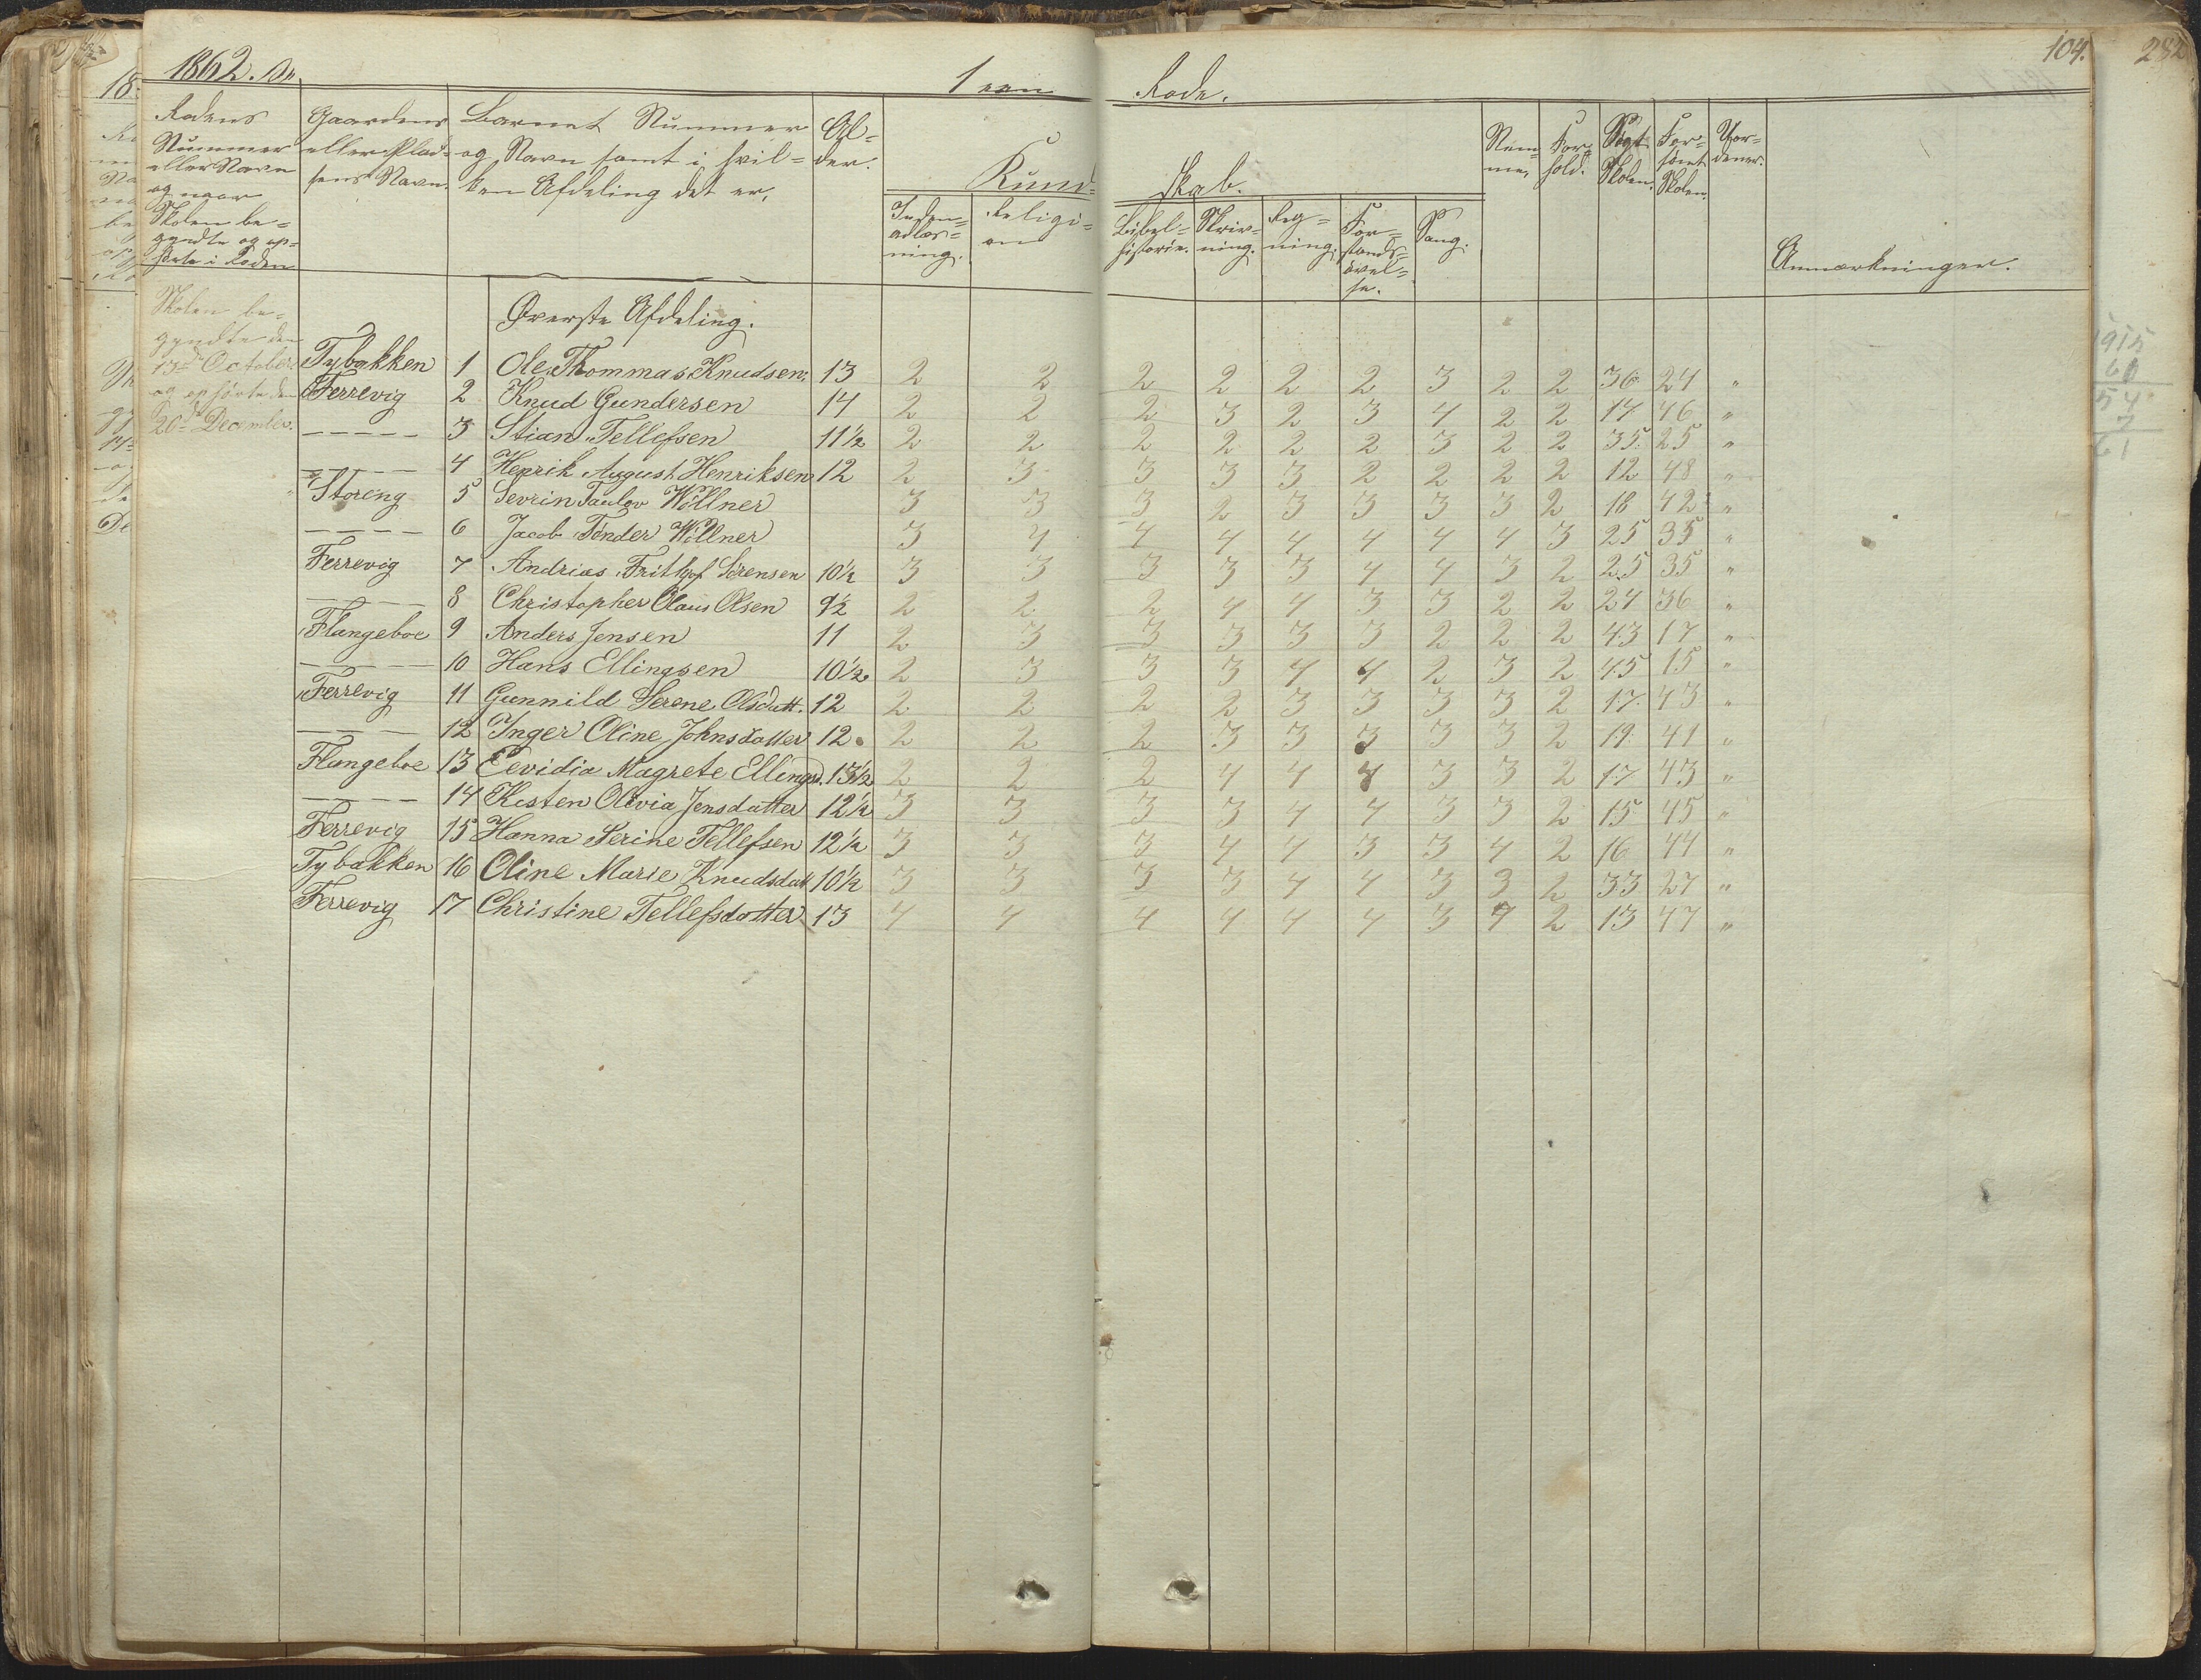 1862.
1ern Rode.
104.
282
Rodens Nummer eller Navn og naar Skolen begyndte og ophørte i Roden
Gaardens eller Pladsens Navn.
Barnets Nummer og Navn samt i hvilken Afdeling det er.
Alder.
Kundskab.
Indenadlæsning.
Religion
Bibelhistorie.
Skrivning.
Regning.
Forstandsøvelse.
Sang.
Nemme.
Forhold.
Søgt Skolen.
Forsømt Skolen.
Anmærkninger.
Skolen begyndte den 13de October og ophørte den 20de December.
Øverste Afdeling.
Tybakken 1 Ole Thommas Knudsen 13 2 2 2 2 2 2 3 2 2 36 24 "
Færrevig 2 Knud Gundersen 14 2 2 2 3 2 3 4 2 2 14 46 "
- - - - - 3 Stian Tellefsen 11½ 2 2 2 2 2 2 3 2 2 35 25 "
- - - - - 4 Henrik August Henriksen 12 2 3 3 3 3 2 2 2 2 12 48 "
Storeng 5 Sevrin Taulov Wöllner 3 3 3 2 3 3 3 3 2 18 42 "
- - - - - 6 Jacob Tönder Wöllner 3 4 4 4 4 4 4 4 3 25 35 "
Færrevig 7 Andrias Frithjof Sörensen 10½ 3 3 3 3 3 4 4 3 2 25 35 "
- - - - - 8 Christopher Olaus Olsen 9½ 2 2 2 4 4 3 3 2 2 24 36 "
Flangeboe 9 Anders Jensen 11 2 3 3 3 3 3 2 2 2 43 17 "
- - - - - 10 Hans Ellingsen 10½ 2 3 3 3 4 4 2 3 2 45 15 "
Færrevig 11 Gunnild Serene Olsdatt. 12 2 2 2 2 3 3 3 3 2 17 43 "
- - - - - 12 Inger Oline Johnsdatter 12 2 2 2 3 3 3 3 3 2 19 41 "
Flangeboe 13 Eevidia Magrete Ellingsd. 13½ 2 2 2 4 4 4 3 3 2 17 43 "
- - - - - 14 Kisten Olivia Jensdatter 12½ 3 3 3 3 4 4 3 3 2 15 45 "
Færrevig 15 Hanna Serine Tellefsen 12½ 3 3 3 4 4 3 3 4 2 16 44 "
Tybakken 16 Oline Marie Knudsdatt 10½ 3 3 3 3 4 4 3 3 2 33 27 "
Færrevig 17 Christine Tellefsdatter 13 4 4 4 4 4 4 3 4 2 13 47 "